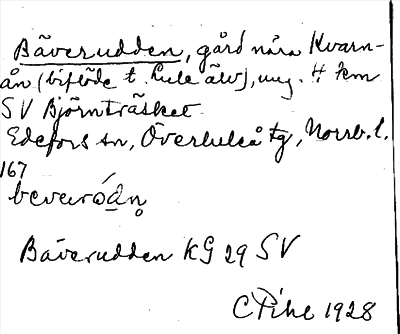 Bäverudden, gård nära Kvarn-
ån (biflöde t. Lule älv), ung. 4 km
SV Björnträsket
Edefors sn, Överluleå tg, Norrb. l.
167
bevaródn̥
Bäverudden KG 29 SV
C Pihl 1928